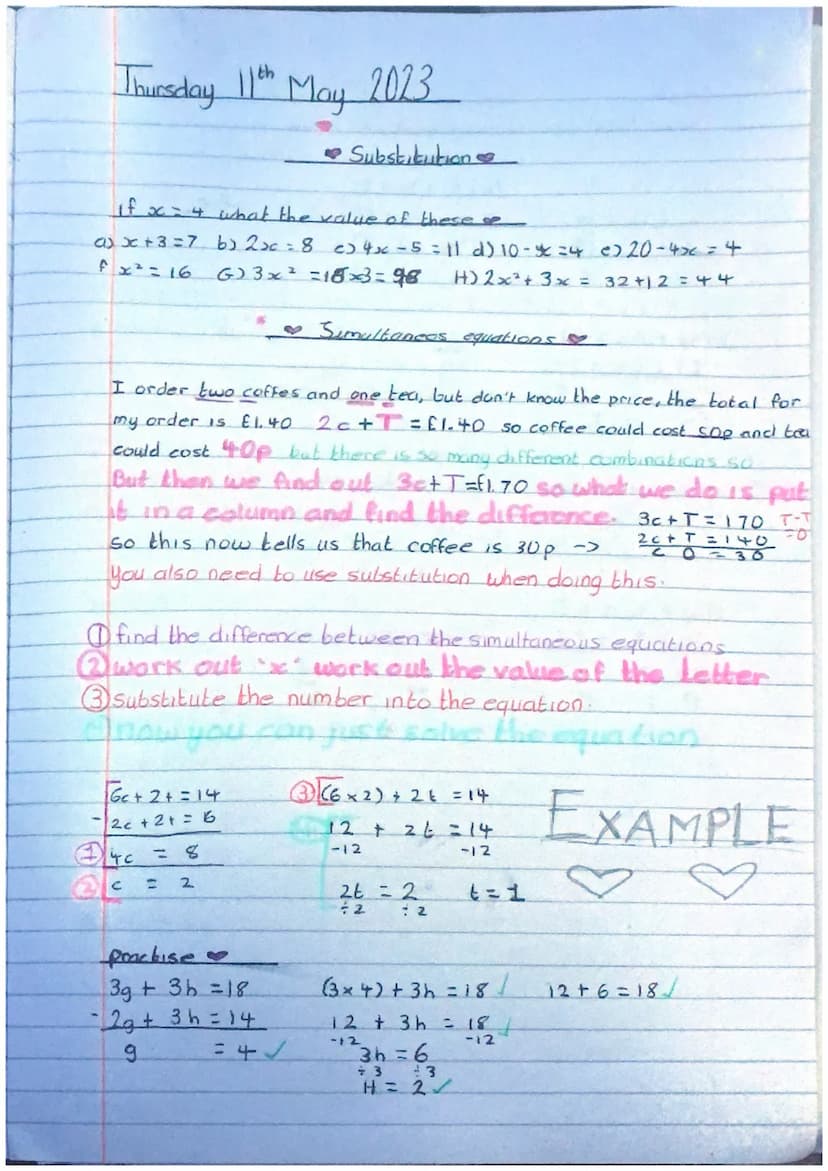 Thursday 11th May 2023
Substitution
If x = 4 what the value of these
a) x + 3 = 7 b) 2x = 8 c) 4x - 5 = 11 d) 10 - x = 4 e) 20 - 4x = 4
f x² = 16 G) 3x² = 16x3 = 98 H) 2x² + 3x = 32 + 12 = 44
Simultaneos equations
I order two coffes and one tea, but don't know the price, the total for
my order is £1.40 2c + T = £1.40 so coffee could cost 50p and tea
could cost 40p but there is so many different combinations so
But then we find out 3c + T = £1.70 so what we do is put
it in a column and find the difference. 3c + T = 170 T-T
so this now tells us that coffee is 30p -> 2c + T = 140 =0
c 0 = 30
You also need to use substitution when doing this.
① find the difference between the simultaneous equations
② work out 'x' work out the value of the letter
③ substitute the number into the equation.
④ now you can just solve the equation
6c + 2t = 14 ③ (6 x 2) + 2t = 14 EXAMPLE
- 2c + 2t = 6 12 + 2t = 14
① 4c = 8 -12 -12
② c = 2 2t = 2 t = 1
÷2 ÷2
practise
3g + 3h = 18 (3 x 4) + 3h = 18 ✓ 12 + 6 = 18 ✓
- 2g + 3h = 14 12 + 3h = 18 ✓
g = 4 ✓ -12 -12
3h = 6
÷3 ÷3
H = 2 ✓